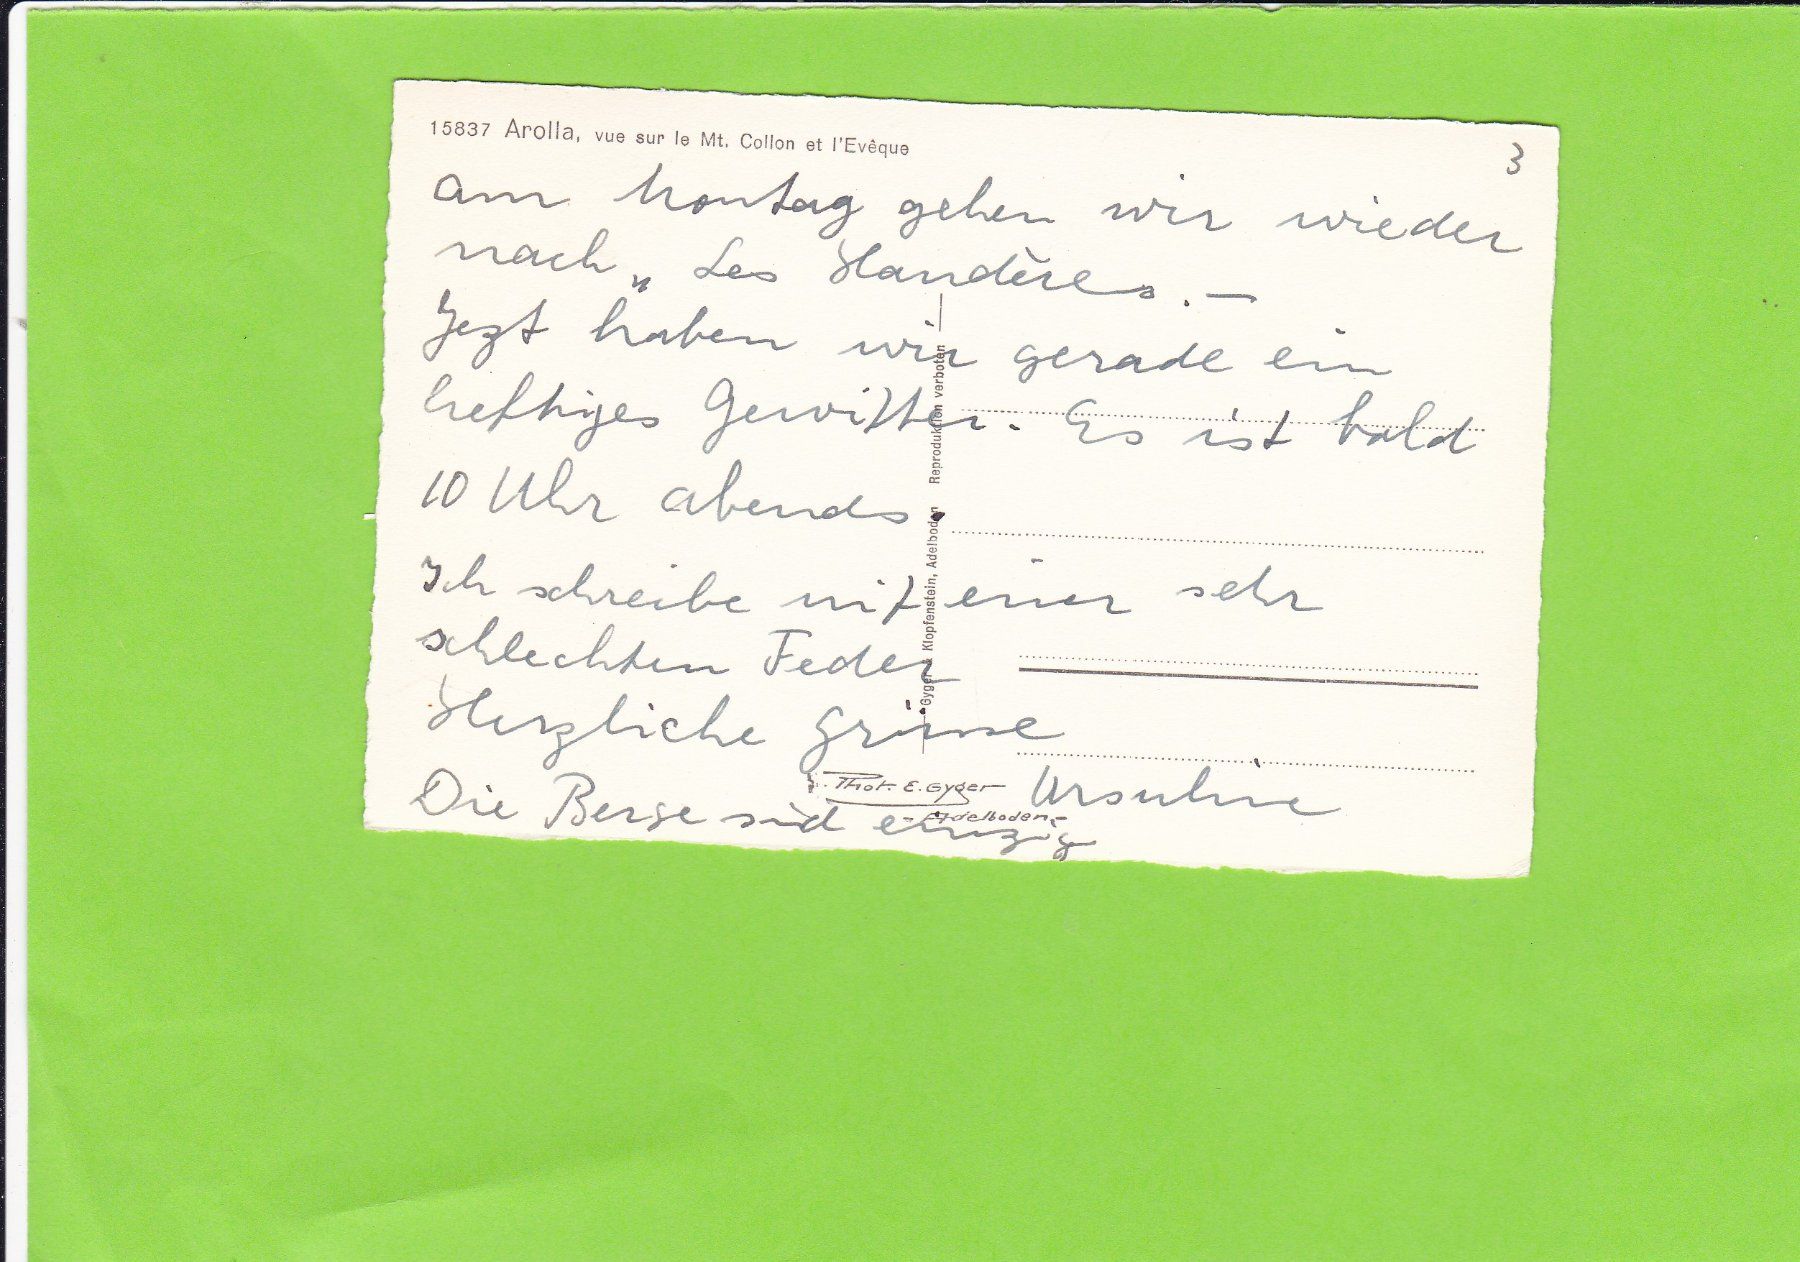 15837 Arolla, vue sur le Mt. Collon et l'Evêque
3
am Montag gehen wir wieder
nach „ Les Handères. –
Jezt haben wir gerade ein
heftiges Gewitter. Es ist bald
10 Uhr abends.
Ich schreibe mit einer sehr
schlechten Feder
Herzliche Grüsse
Ursuline
Die Berge sind einzig
Phot. E. Gyger
Adelboden
Gyger & Klopfenstein, Adelboden Reproduktion verboten